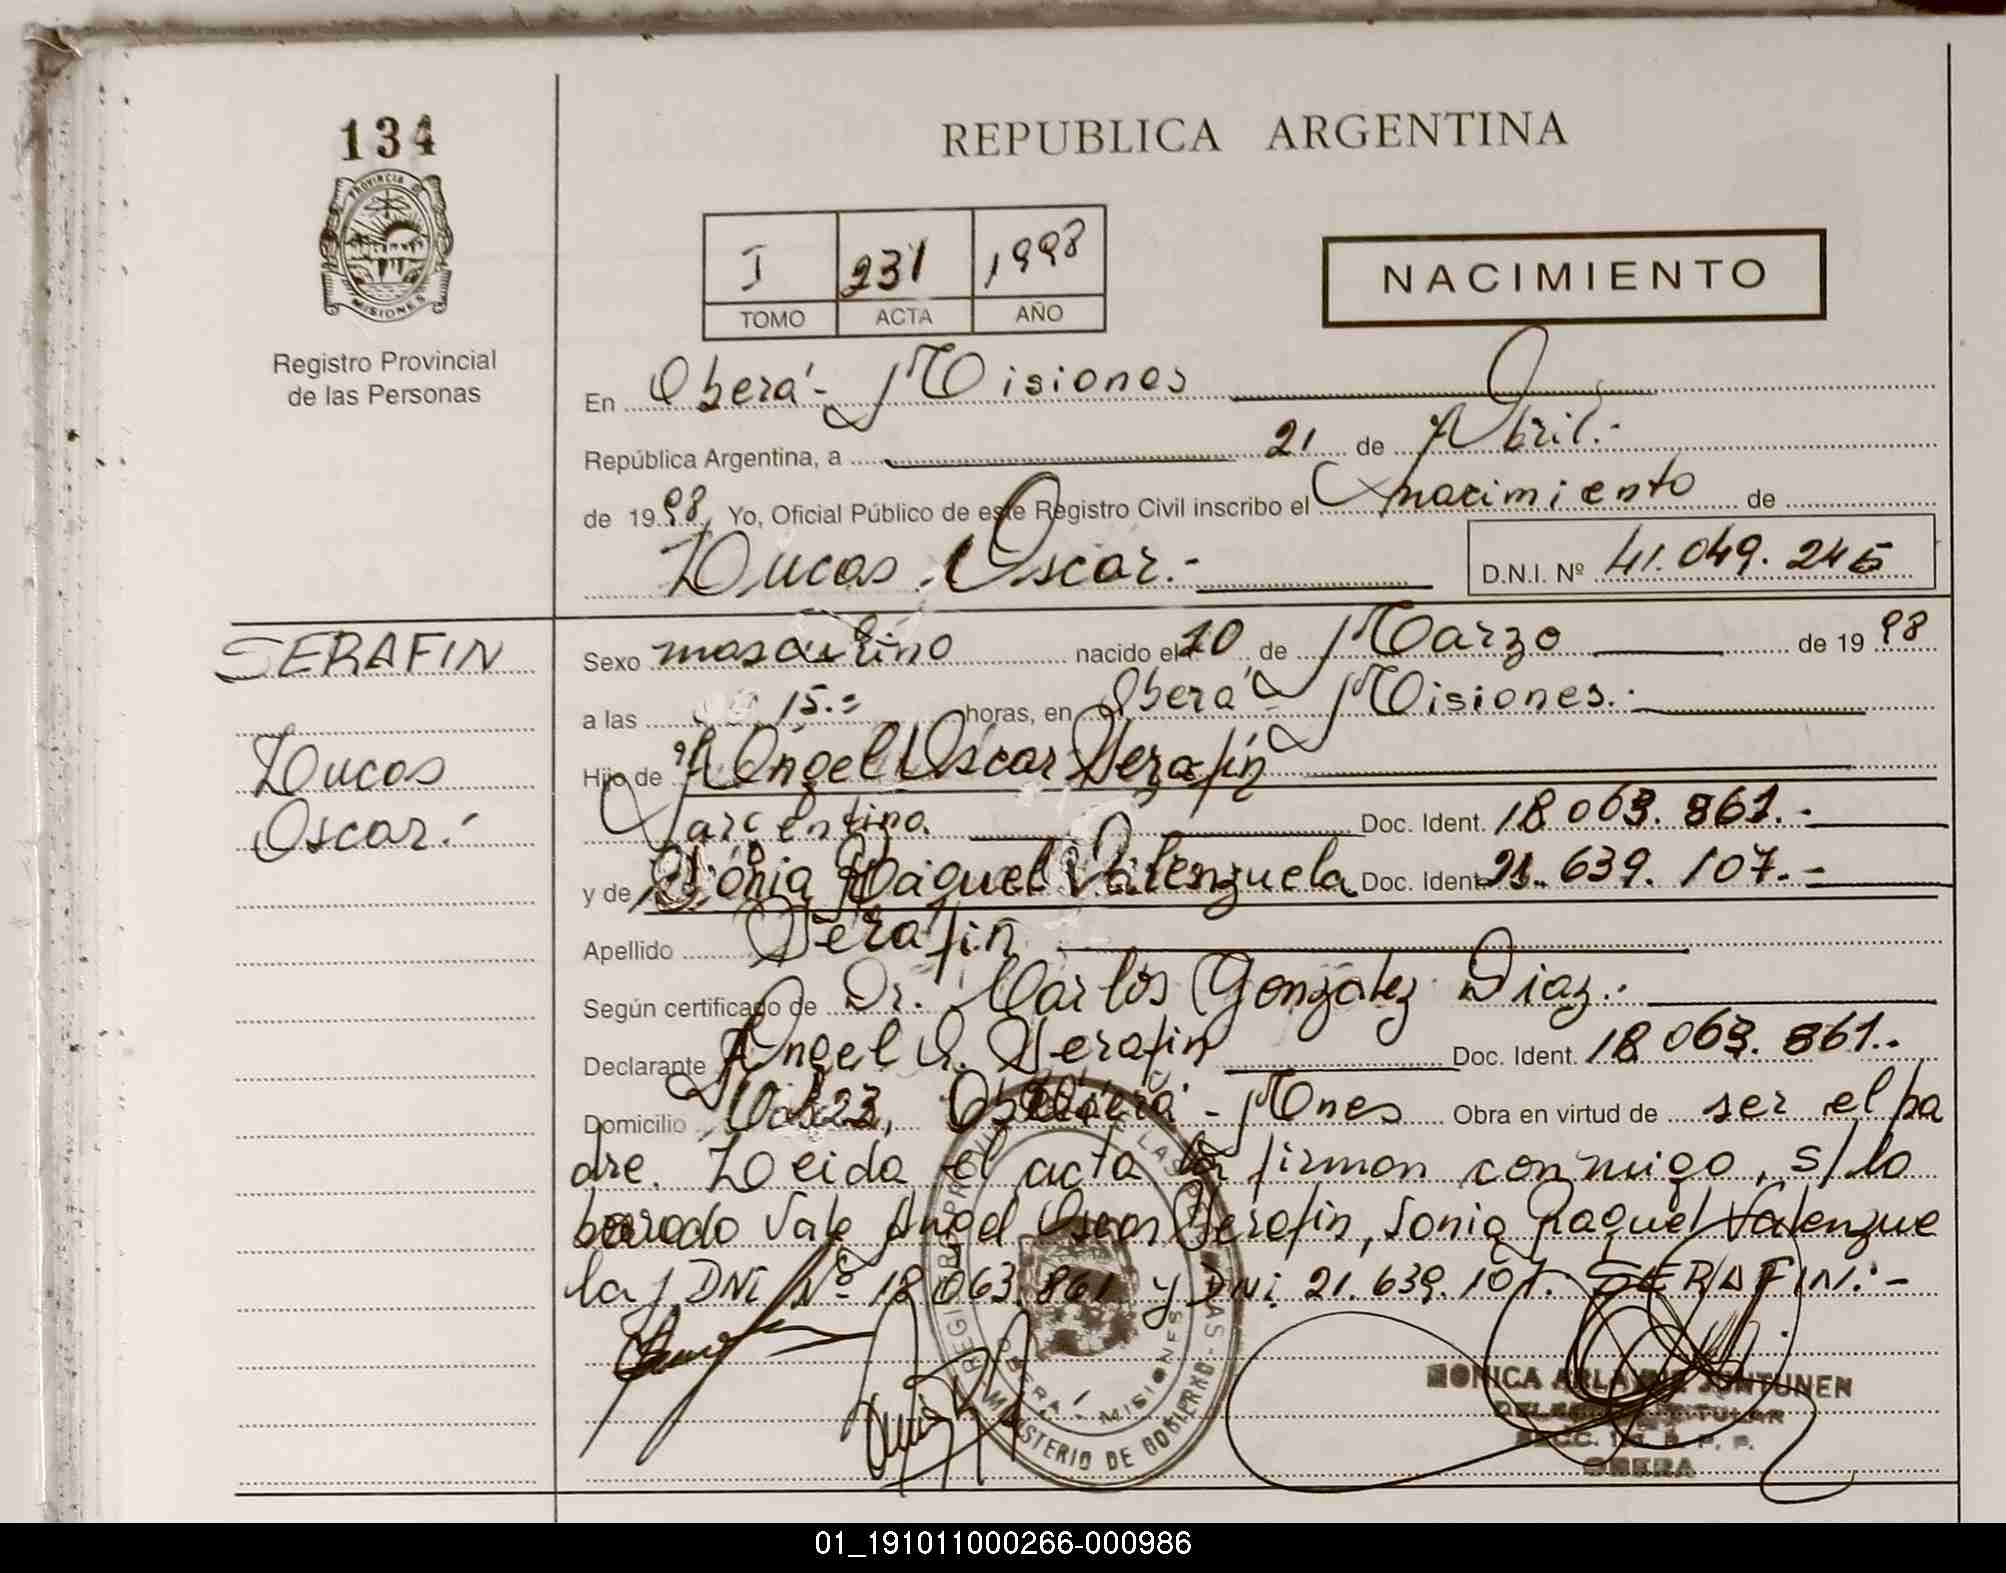 134
PROVINCIA DE
MISIONES
Registro Provincial
de las Personas
REPUBLICA ARGENTINA
I 231 1998
TOMO ACTA AÑO
NACIMIENTO
En Oberá - Misiones
República Argentina, a 21 de Abril.-
de 19 98, Yo, Oficial Público de este Registro Civil inscribo el nacimiento de
Lucas Oscar.- D.N.I. Nº 41.049.245
SERAFIN
Lucas
Oscar.-
Sexo masculino nacido el 10 de Marzo de 19 98
a las 15.= horas, en Oberá - Misiones.-
Hijo de Angel Oscar Serafin
argentino. Doc. Ident. 18.063.861.-
y de Sonia Raquel Valenzuela Doc. Ident. 21.639.107.-
Apellido Serafin
Según certificado de Dr. Carlos González Diaz.-
Declarante Angel O. Serafin Doc. Ident. 18.063.861.-
Domicilio 23, Oberá - Mnes Obra en virtud de ser el pa
dre. Leida el acta la firman conmigo, s/lo
borrado Vale Angel Oscar Serafin, Sonia Raquel Valenzue
la y DNI Nº 18.063.861 y DNI. 21.639.107. SERAFIN.-
MINISTERIO DE GOBIERNO
OBERA - MISIONES
MONICA JUNTUNEN
TITULAR
OBERA
01_191011000266-000986